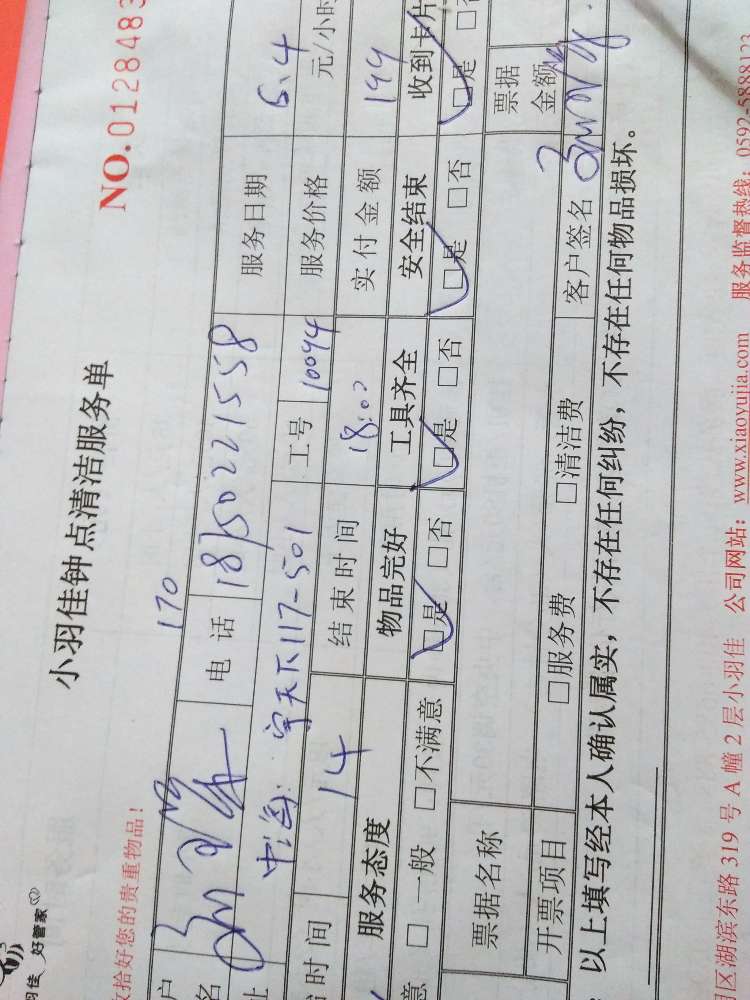 羽佳 好管家
小羽佳钟点清洁服务单
NO.0128483
收拾好您的贵重物品!
170
户名 电话 18150221558 服务日期 6.4
址 中海 宇天下117-501 工号 10094 服务价格 元/小时
时间 14 结束时间 18:00 实付金额 144
服务态度 物品完好 工具齐全 安全结束 收到卡片
意 □一般 □不满意 □是 □否 □是 □否 □是 □否 □是 □否
票据名称 票据金额
开票项目 □服务费 □清洁费 客户签名
以上填写经本人确认属实,不存在任何纠纷,不存在任何物品损坏。
区湖滨东路 319 号 A 幢 2 层小羽佳 公司网站:www.xiaoyujia.com 服务监督热线:0592-5888123